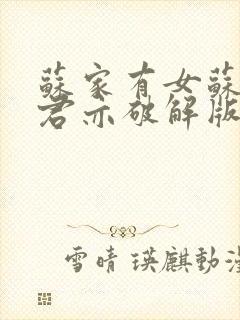 蘇家有女蘇
君亦破解版
雪晴 瑛麒動漫